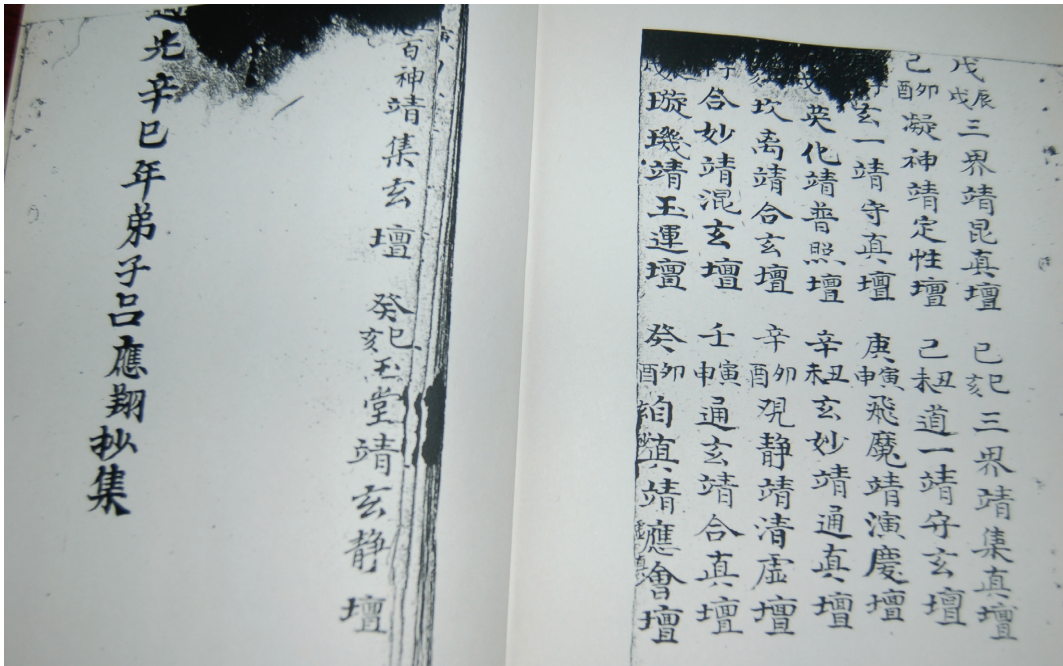 戊辰戌三界靖昆真壇 己巳亥三界靖集真壇
己卯酉凝神靖定性壇 己丑未道一靖守玄壇
玄一靖守真壇 庚寅申飛魔靖演慶壇
英化靖普照壇 辛丑未玄妙靖通真壇
坎离靖合玄壇 辛卯酉覌静靖清虛壇
合妙靖混玄壇 壬寅申通玄靖合真壇
璇璣靖玉運壇 癸卯酉真靖應會壇
百神靖集玄壇 癸巳亥玉堂靖玄静壇
光辛巳年弟子呂應翔抄集